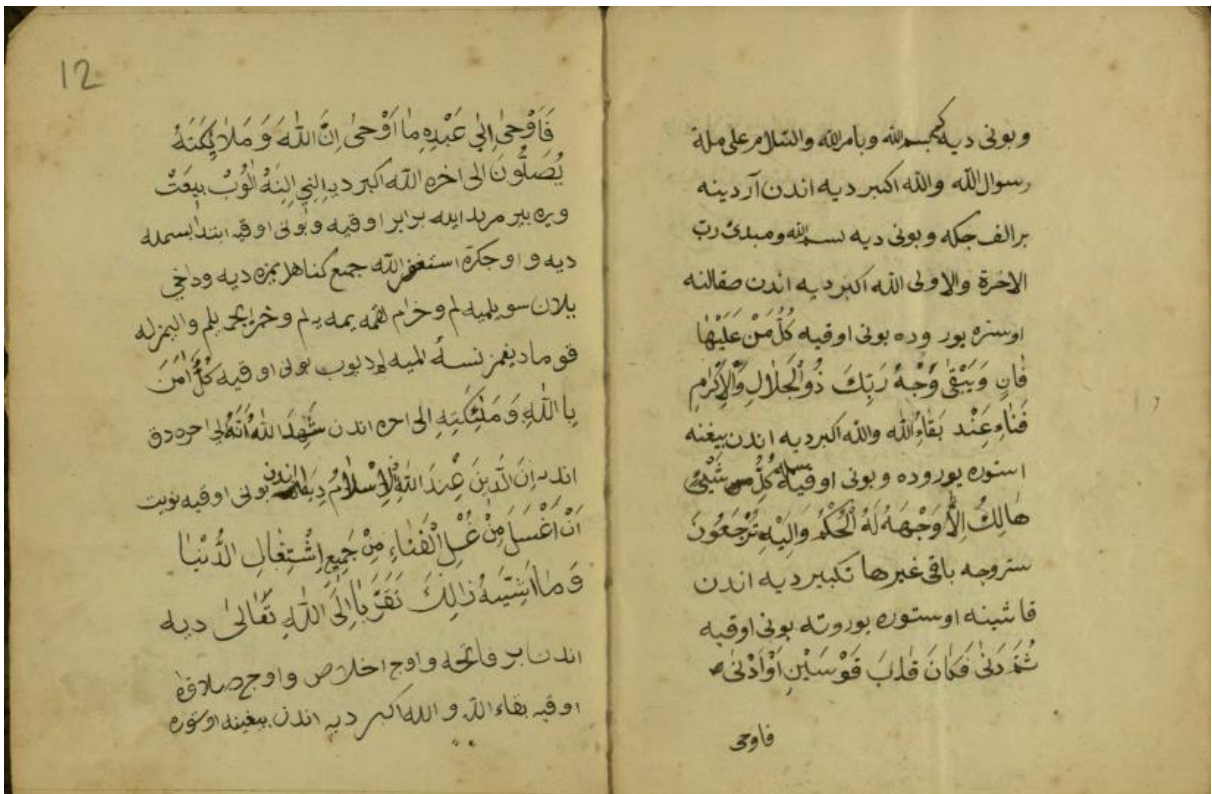 وبونى ديه كه بسم الله وبامر الله والسلام على ملة
رسوال الله والله اكبر ديه اندن آردينه
بر الف جكه وبونى ديه بسم الله ومبدئ رب
الاخرة والاولى الله اكبر ديه اندن صقالنه
اوستره يوروده بونى اوقيه كُلُّ مَنْ عَلَيْهٰا
فَانٍ وَيَبْقىٰ وَجْهُ رَبِّكَ ذُو الْجَلَالِ وَالْاِكْرٰامِ
فَنَاءِ عِنْد بَقَاءُ الله والله اكبر ديه اندن بيغنه
استوره يوروده وبونى اوقيه بسمله كُلُّ شَيْئٍ
هٰالِكٌ اِلَّا وَجْهَهُ لَهُ الْحُكْمُ وَاِلَيْهِ تُرْجَعُونَ
ستروجه باقى غيرها تكبير ديه اندن
قاشينه اوستوره يوروته بونى اوقيه
ثُمَّ دَنٰى فَكَانَ قٰابَ قَوْسَيْنِ اَوْ اَدْنٰى
فاوحى
12
فَاَوْحىٰ اِلٰى عَبْدِهِ مٰا اَوْحىٰ اِنَّ اللّٰهَ وَ مَلٰائِكَتَهُ
يُصَلُّونَ الى اخره الله اكبر ديه اِلِنِي اِلِنَهُ اٰلُوبْ بيعَتْ
ويره بير مريد ايله برابر اوقيه وبونى اوقيه ابتدا بسمله
ديه و اوجكره استغفر الله جمع كناهلريمزه ديه وداخي
يلان سويلميه لم وخرام لقمه يمه يه لم وخمر ايجميه لم والمزله
قومادیغمز نسه المیه لم دیوب بونى اوقيه كُلٌّ اٰمَنَ
بِااللّٰهِ وَ مَلٰئِكَتِهِ الى اخره اندن شَهِدَ اللّٰهُ اَنَّهُ الى اخره دق
اندن اِنَّ الَّدينَ عِنْدَ اللّٰهِ الْاِسْلَامُ ديه اندن بونى اوقيه نويت
اَنْ اَغْسَلَ مِنْ غُسْلِ الْفَنٰاءِ مِنْ جَمِيعِ اِشْتِغٰالِ الدُّنْيٰا
وَ مٰا ذٰالِكَ تَقَرُّبًا اِلَى اللّٰهِ تَعٰالىٰ ديه
اندن بر فاتحه و اوج اخلاص و اوج صلاوة
اوقيه بقاء الله و الله اكبر ديه اندن بيغينه اوستوره